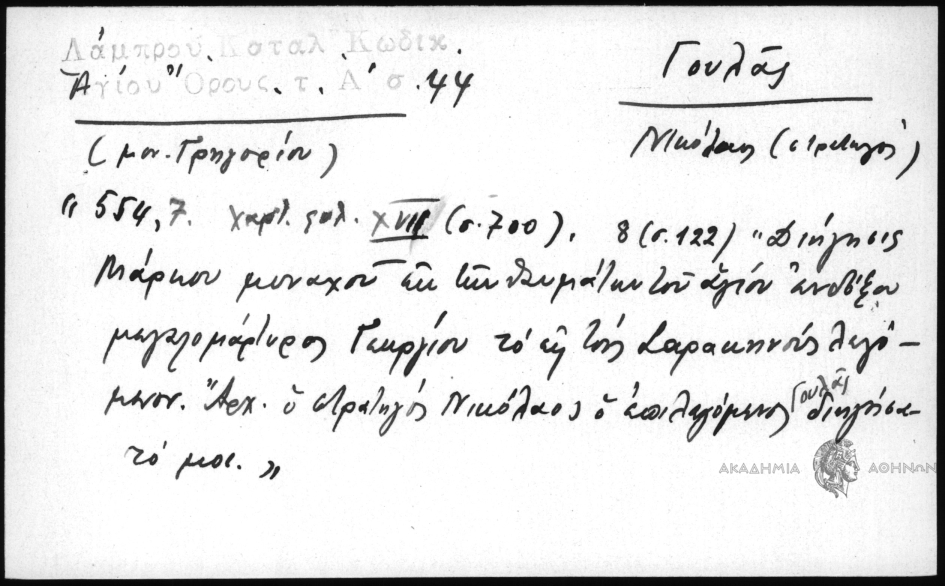 Λάμπρου Καταλ Κωδικ.
Ἁγίου Ὄρους. τ. Α' σ. 44
Γουλᾶς
(μον. Γρηγορίου)
Νικόλαος (στρατηγός)
“ 554, 7. χαρτ. φυλ. XVII (σ. 700). 8 (σ. 122) “ Διήγησις
Μάρκου μοναχοῦ ἐκ τῶν θαυμάτων τοῦ ἁγίου ἐνδόξου
μεγαλομάρτυρος Γεωργίου τὸ εἰς τοὺς Σαρακηνούς λεγό-
μενον. Ἀρχ. ὁ στρατηγός Νικόλαος ὁ ἐπιλεγόμενος Γουλᾶς διηγήσα-
τό μοι. „
ΑΚΑΔΗΜΙΑ ΑΘΗΝΩΝ